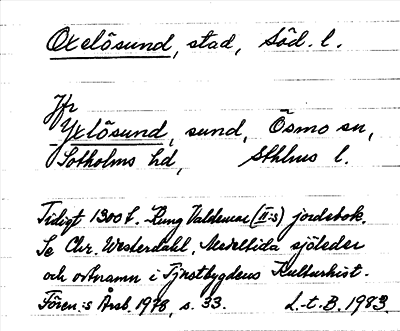 Oxelösund, stad, Söd. l.
Jfr
Yxlösund, sund, Ösmo sn,
Sotholms hd, Sthlms l.
Tidigt 1300 t. Kung Valdemar (II:s) jordebok.
Se Chr. Westerdahl, Medeltida sjöleder
och ortnamn i Tjustbygdens Kulturhist.
Fören:s Årsb. 1978, s. 33. L-t. B. 1983.